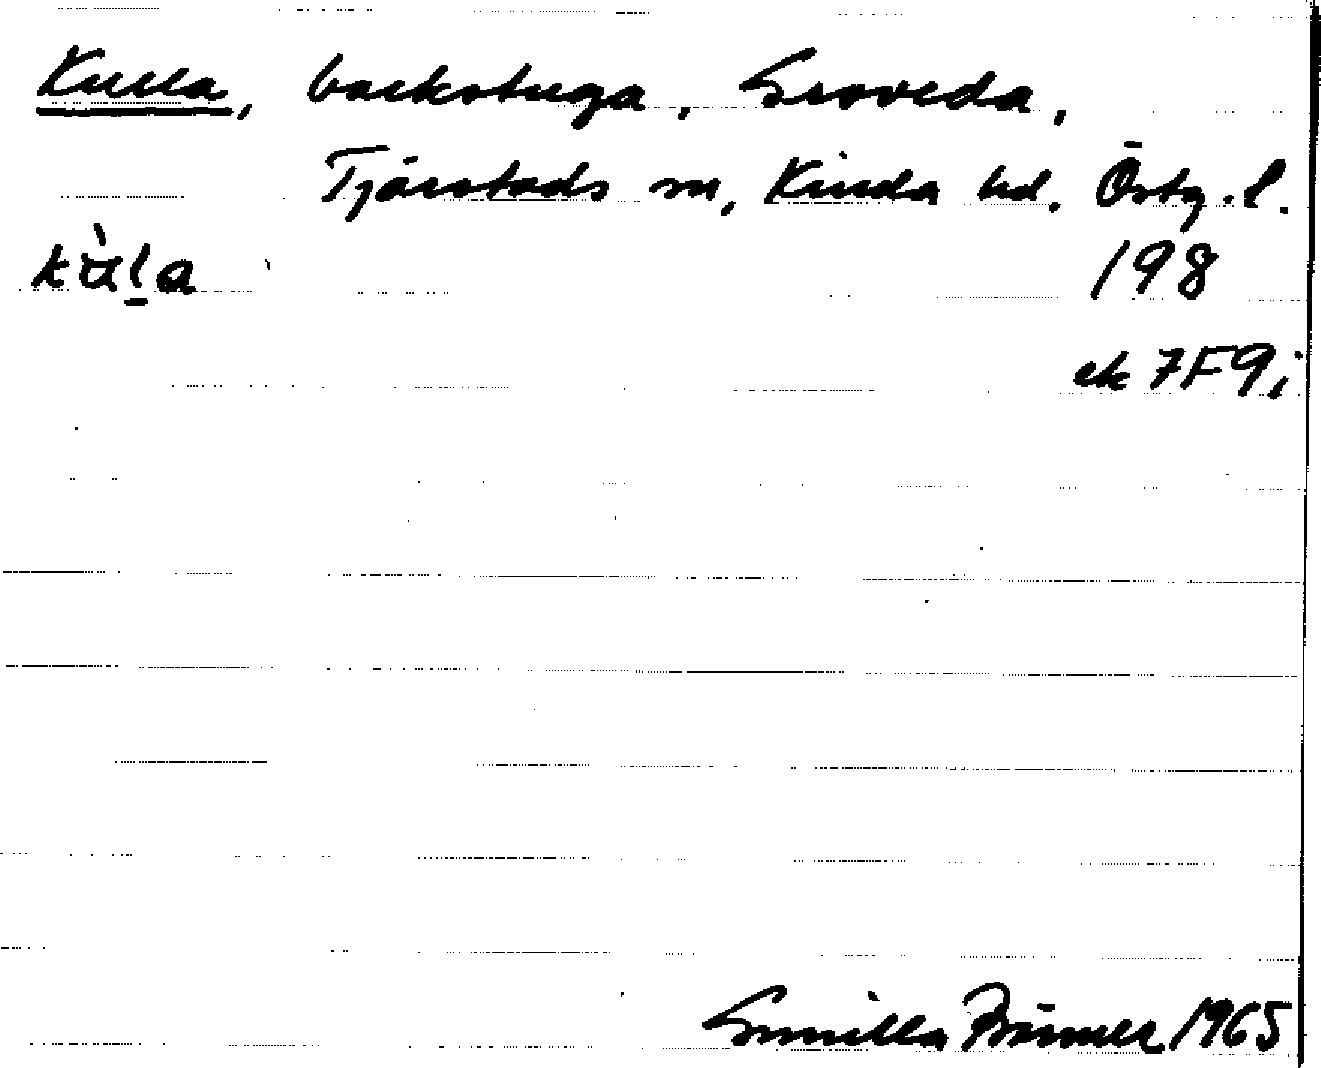 Kulla, backstuga, Groveda,
Tjärstads sn, Kinda hd. Östg.l.
kùl̠a 198
ek 7F9i
Gunilla 1965